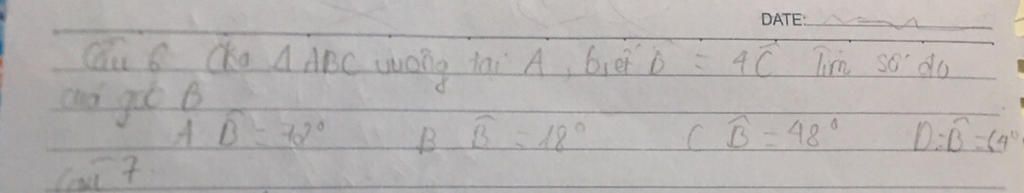 DATE:
Câu 6 Cho Δ ABC vuông tại A, biết B̂ = 4Ĉ Tìm số đo
của góc B
A B̂ = 72° B B̂ = 18° C B̂ = 48° D: B̂ = 64°
Câu 7